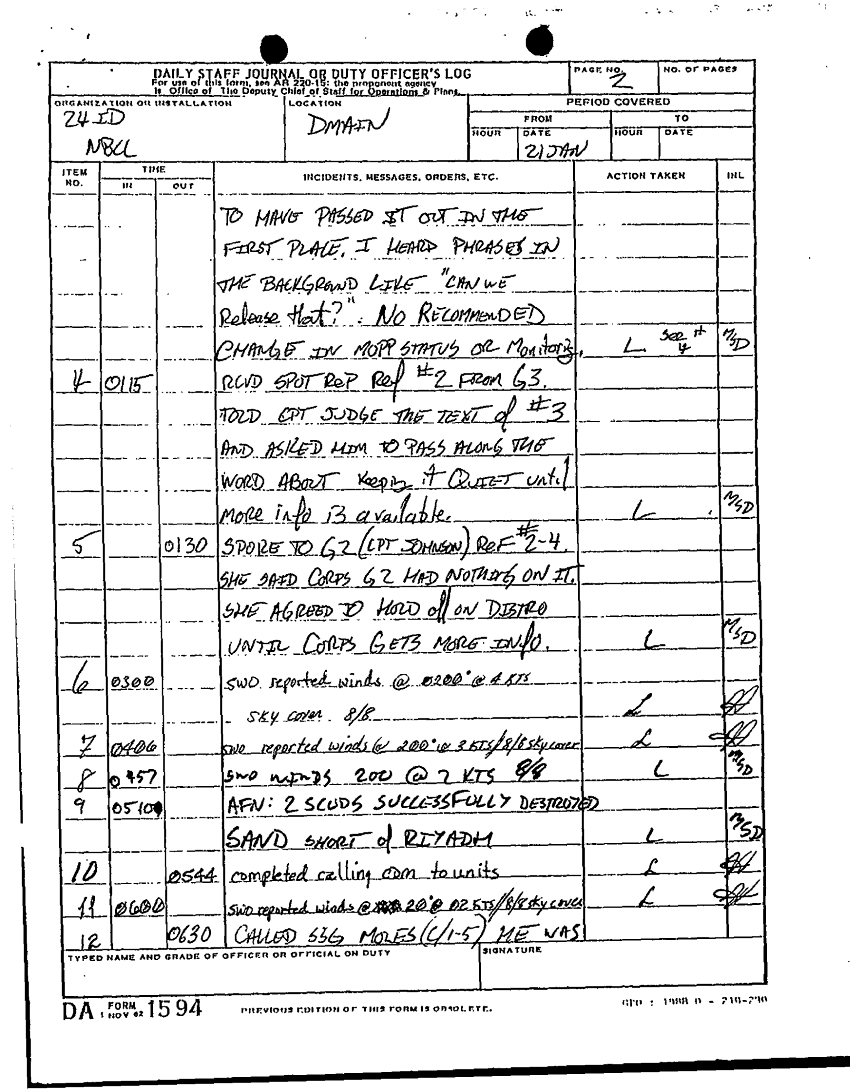 DAILY STAFF JOURNAL OR DUTY OFFICER'S LOG
For use of this form, see AR 220-15; the proponent agency
is Office of The Deputy Chief of Staff for Operations & Plans.
PAGE NO.
2
NO. OF PAGES
ORGANIZATION OR INSTALLATION
24 ID
NBCC
LOCATION
DMAIN
PERIOD COVERED
FROM
TO
HOUR DATE HOUR DATE
21 JAN
ITEM NO.
TIME
IN OUT
INCIDENTS, MESSAGES, ORDERS, ETC.
ACTION TAKEN
INL
TO HAVE PASSED IT OUT IN THE
FIRST PLACE. I HEARD PHRASES IN
THE BACKGROUND LIKE "CAN WE
Release that?". NO RECOMMENDED
CHANGE IN MOPP STATUS OR Monitoring. L See # 4 MSD
4 0115 RCVD SPOT REP Ref #2 FROM G3.
TOLD CPT JUDGE THE TEXT of #3
AND ASKED HIM TO PASS ALONG THE
WORD ABOUT Keeping it QUIET until
MORE info is available. L MSD
5 0130 SPOKE TO G2 (CPT JOHNSON) Ref #2-4.
SHE SAID CORPS G2 HAD NOTHING ON IT.
SHE AGREED TO HOLD off ON DISTRO
UNTIL CORPS GETS MORE INfO. L MSD
6 0300 SWO reported winds @ 0200° @ 4 KTS
SKY cover 8/8 L
7 0406 SWO reported winds @ 200° @ 3 KTS/8/8 sky cover L
8 0457 SWO WINDS 200 @ 7 KTS 8/8 L MSD
9 0510 AFN: 2 SCUDS SUCCESSFULLY DESTROYED
SAND SHORT of RIYADH L MSD
10 0544 completed calling CDM to units L
11 0600 SWO reported winds @ 20° @ 02 KTS/8/8 sky cover L
12 0630 CALLED SSG MOLES (C/1-5) HE WAS
TYPED NAME AND GRADE OF OFFICER OR OFFICIAL ON DUTY
SIGNATURE
DA FORM 1 NOV 62 1594
PREVIOUS EDITION OF THIS FORM IS OBSOLETE.
GPO : 1988 O - 210-290